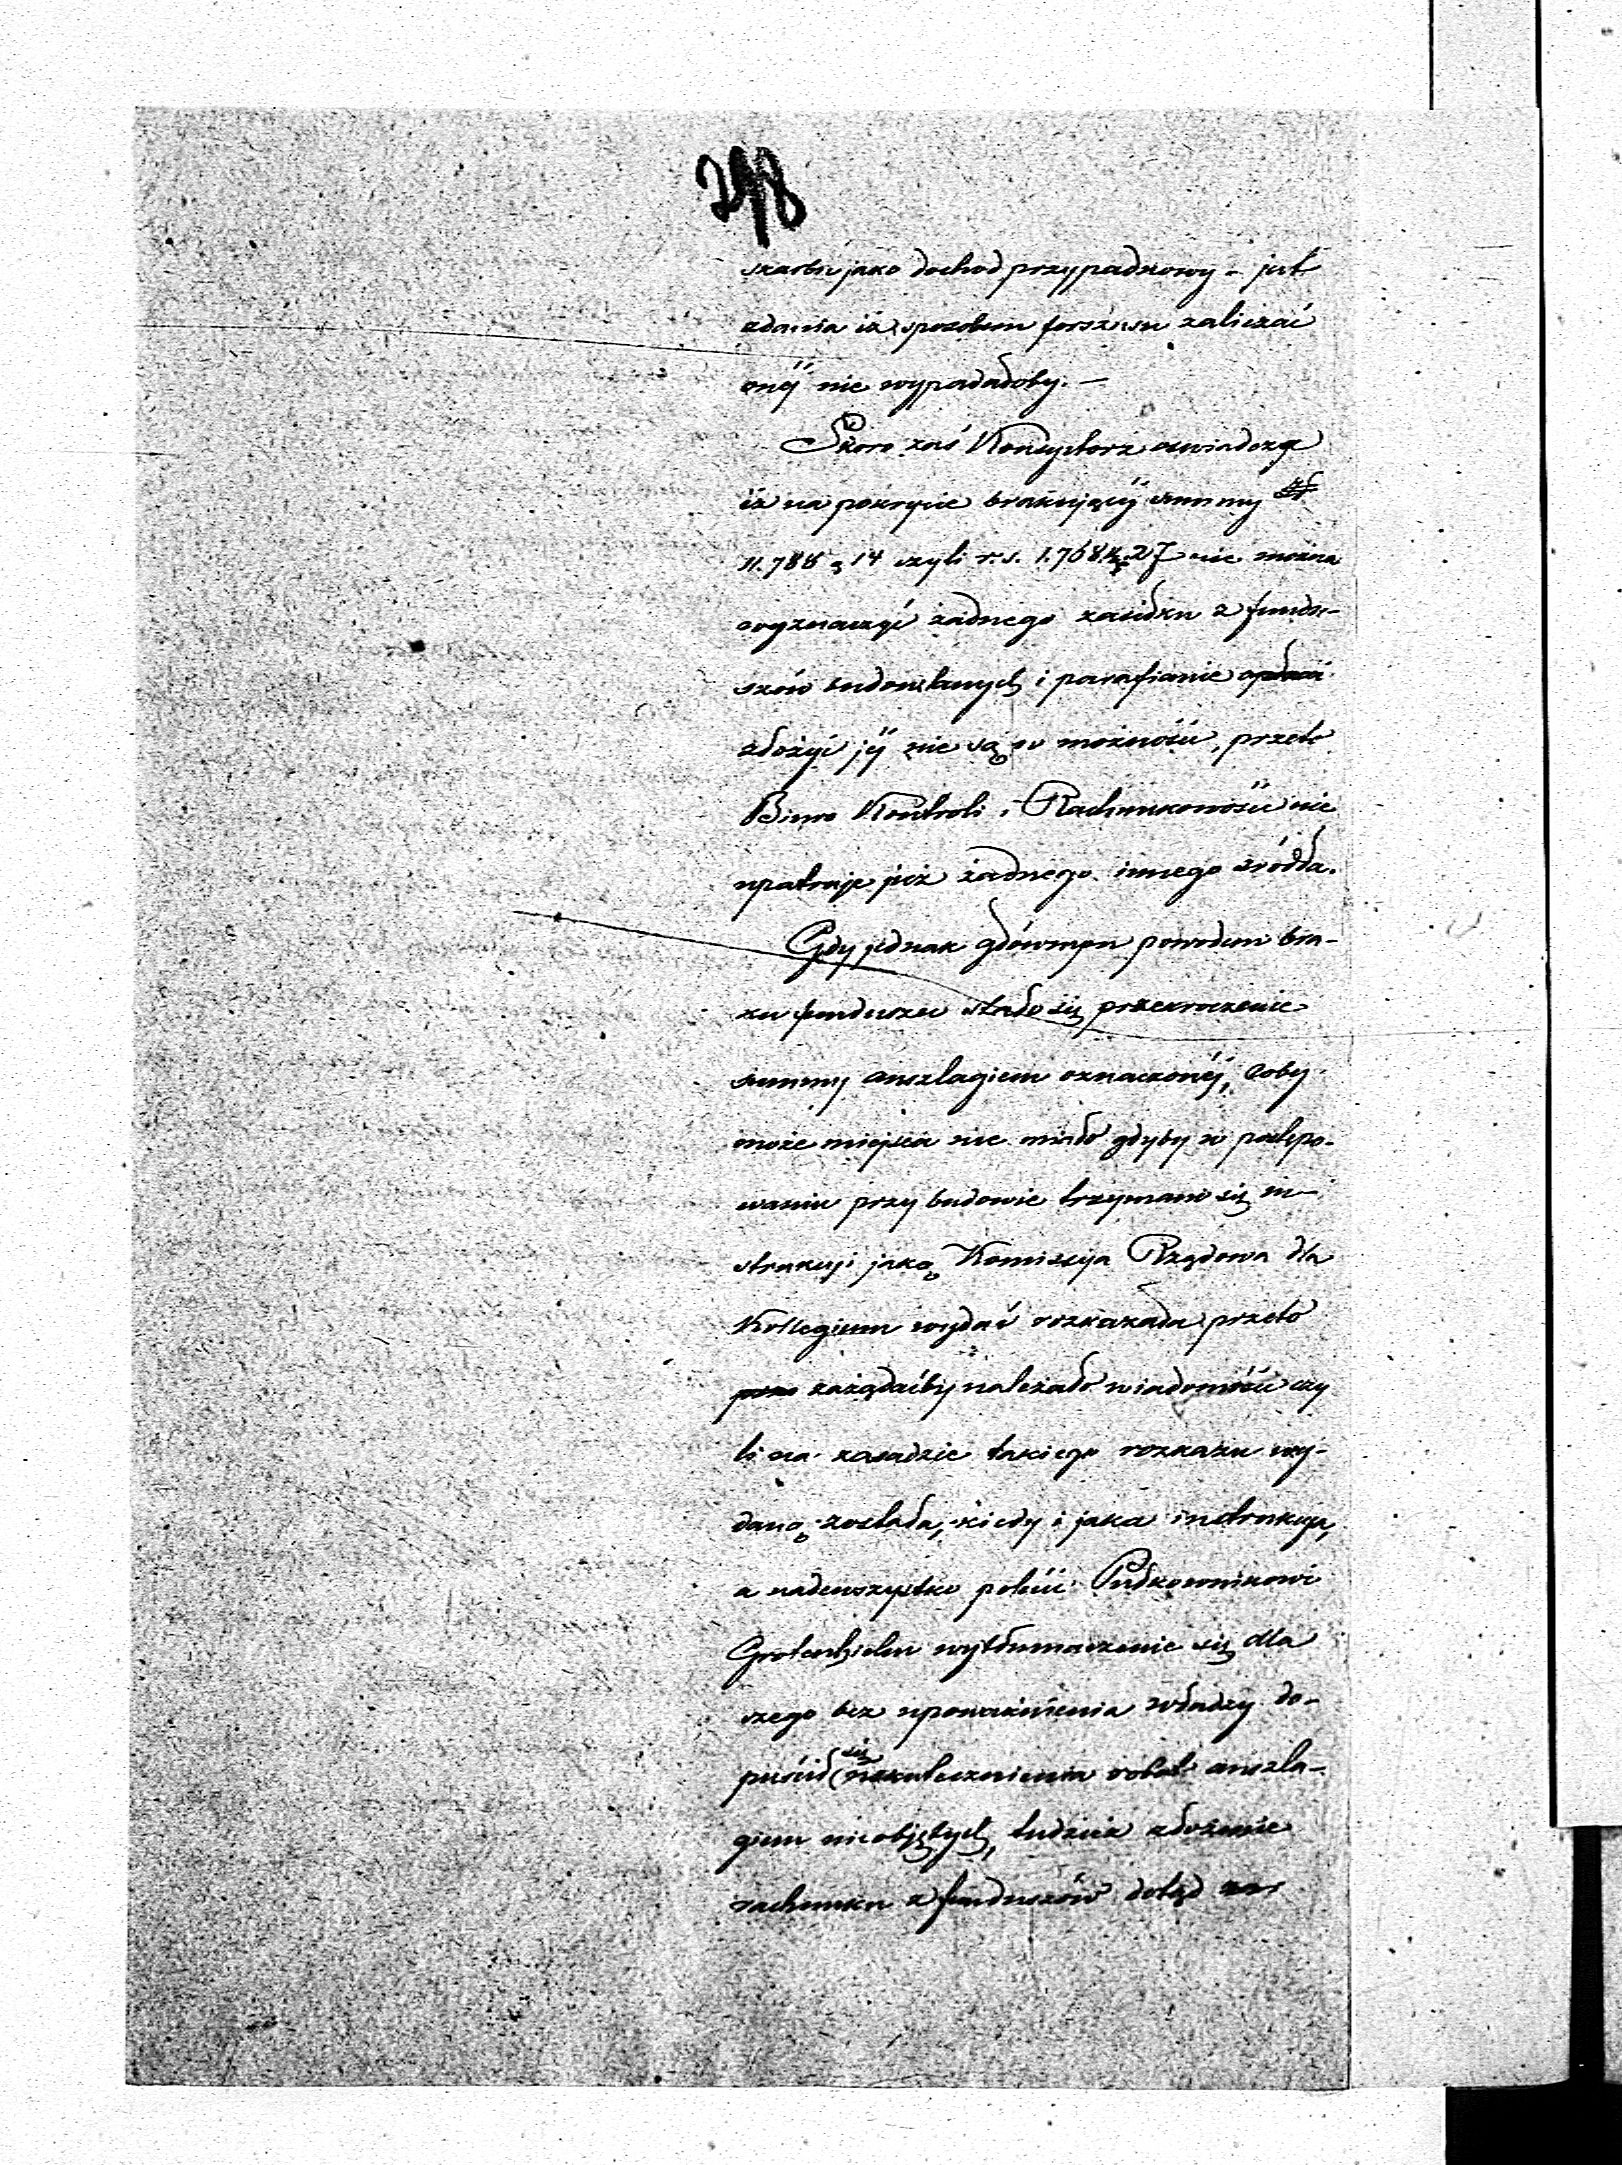 298
skarbu jako dochod przypadkowy – jest
zdania iż sposobem forszusu zaliczać
onéj nie wypadałoby. –
Skoro zaś Konsystorz oswiadcza
iż na pokrycie brakującéj summy zł
11.788 g 14 czyli r. s. 1.768 k 27 nie można
wyznaczyć żadnego zasiłku z fundu-
szów budowlanych i parafianie
złożyć jéj nie są w możności, przeto
Biuro Kontroli i Rachunkowości nie
upatruje już żadnego innego źródła.
Gdy jednak głównym powodem bra-
ku funduszu stało się przekroczenie
summy anszlagiem oznaczonéj, coby
może miejsca nie miało gdyby w postępo-
waniu przy budowie trzymano się in-
strukcyi jaką Komissya Rządowa dla
Kollegium wydać rozkazała przeto
zażądaćby należało wiadomości czy
li na zasadzie takiego rozkazu wy-
daną została, kiedy i jaka instrukcya,
a nadewszystko polecić Pułkownikowi
Grotenhielm wytłumaczenie się dla
czego bez upoważnienia władzy do-
puścił się uskutecznienia robot anszla-
giem nieobjętych, tudzież złożenie
rachunku z funduszów dotąd